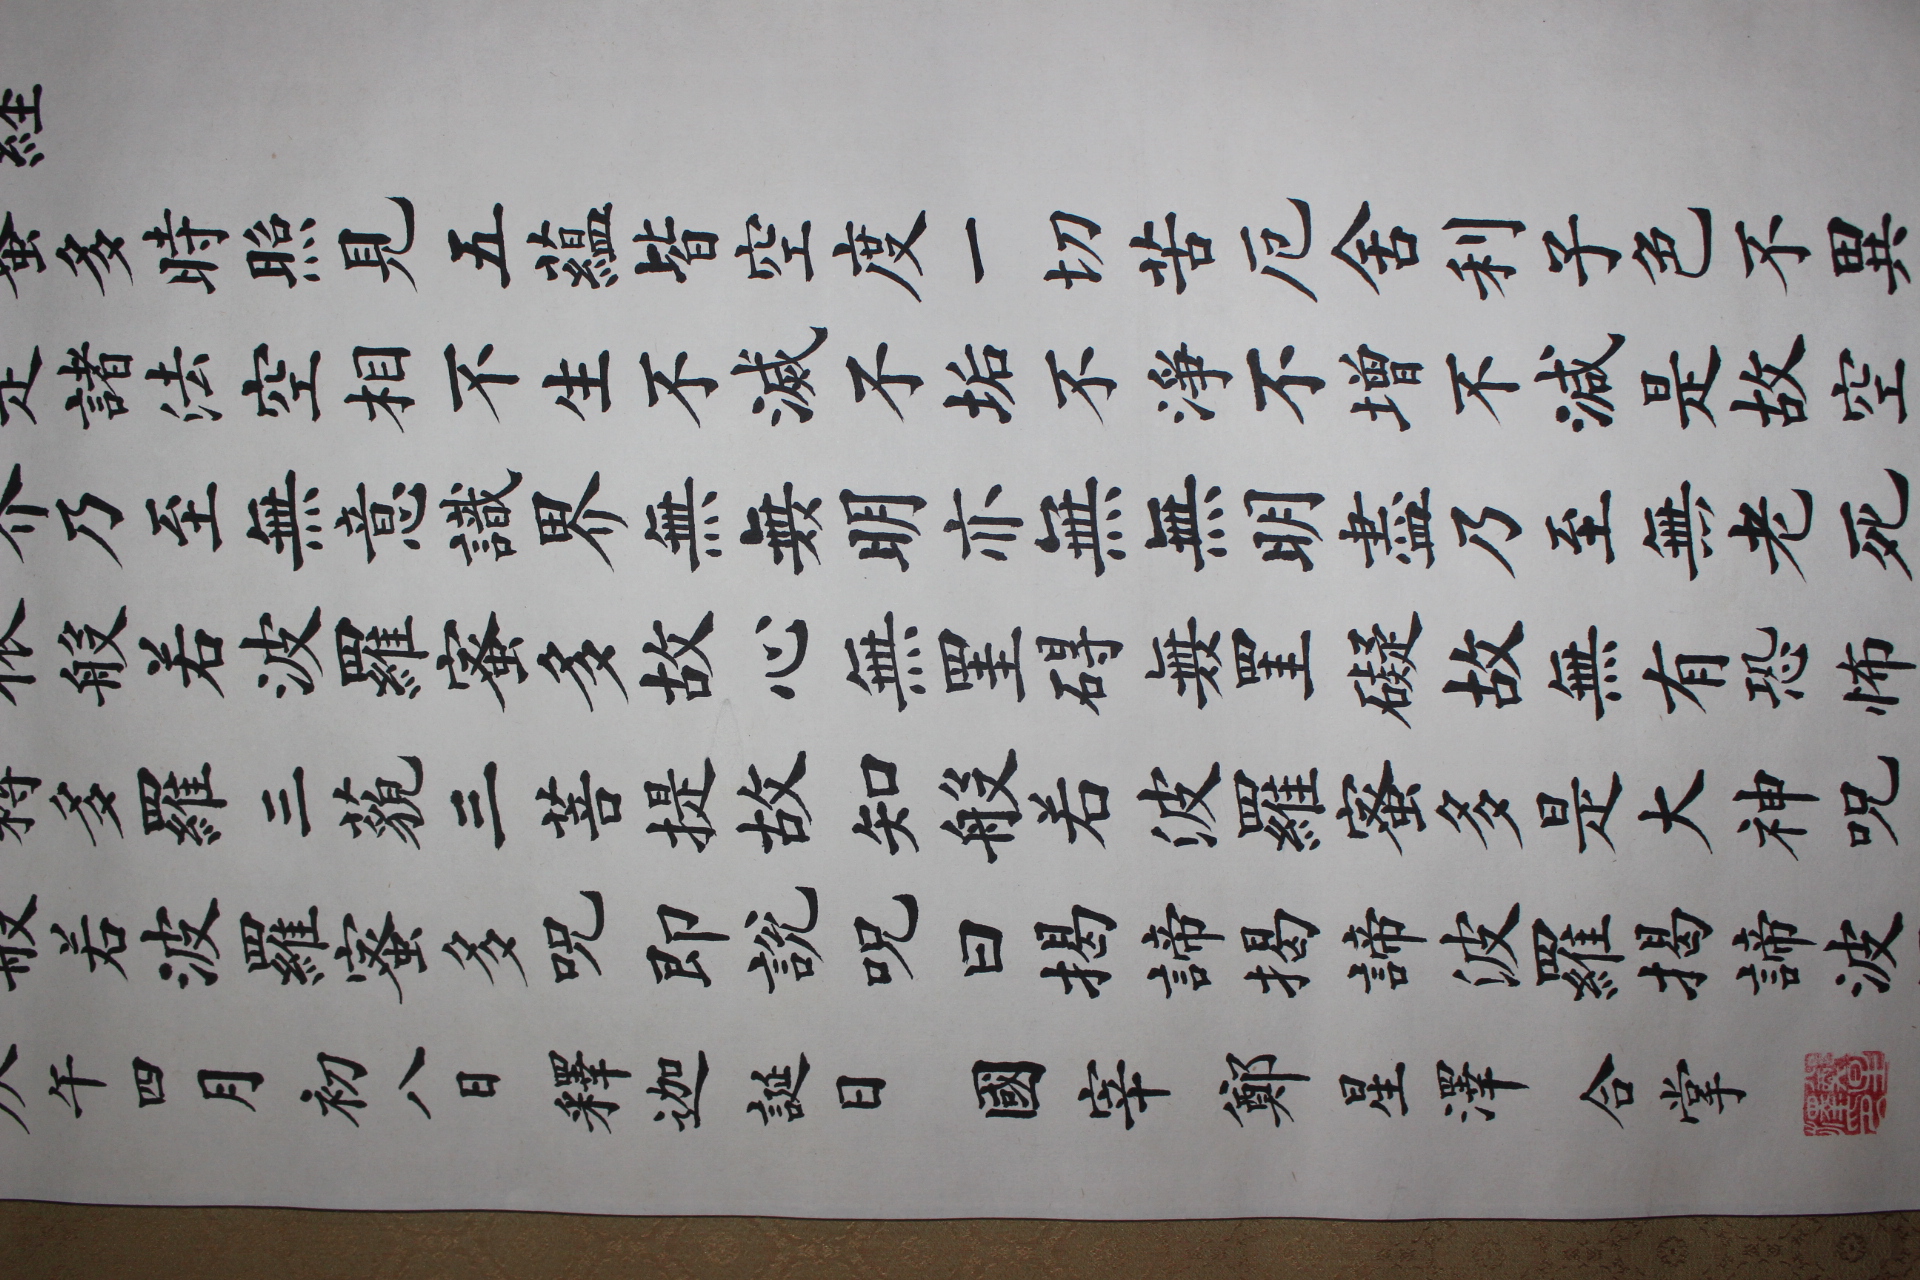 經
蜜多時照見五蘊皆空度一切苦厄舍利子色不異
是諸法空相不生不滅不垢不淨不增不減是故空
界乃至無意識界無無明亦無無明盡乃至無老死
依般若波羅蜜多故心無罣碍無罣礙故無有恐怖
耨多羅三藐三菩提故知般若波羅蜜多是大神呪
般若波羅蜜多呪即說呪曰揭諦揭諦波羅揭諦波
午四月初八日 釋迦誕日 國宰 鄭星澤 合掌